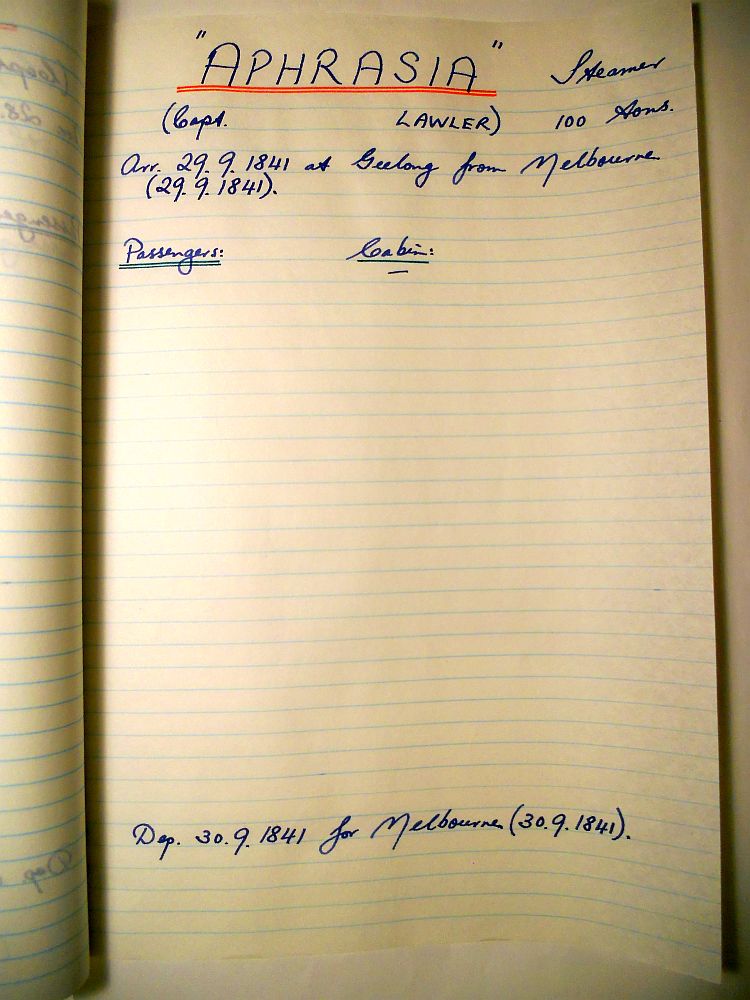 "APHRASIA" Steamer
(Capt. LAWLER) 100 tons.
Arr. 29.9.1841 at Geelong from Melbourne
(29.9.1841).
Passengers: Cabin:
Dep. 30.9.1841 for Melbourne (30.9.1841).